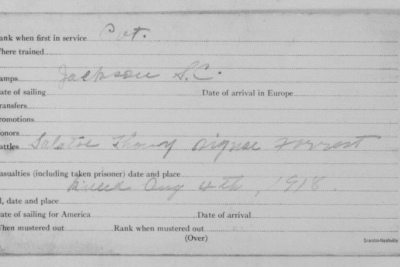 ank when first in service Pvt.
here trained
amps Jackson S.C.
ate of sailing Date of arrival in Europe
ransfers
romotions
onors
attles Argone Forrest
asualties (including taken prisoner) date and place
Killed Aug 4th, 1918.
d, date and place
ate of sailing for America Date of arrival
hen mustered out Rank when mustered out
(Over)